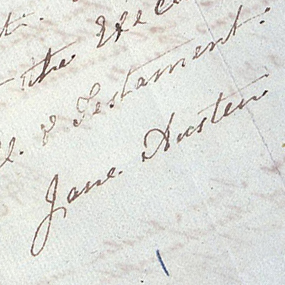 the Exe
l. & Testament.
Jane Austen